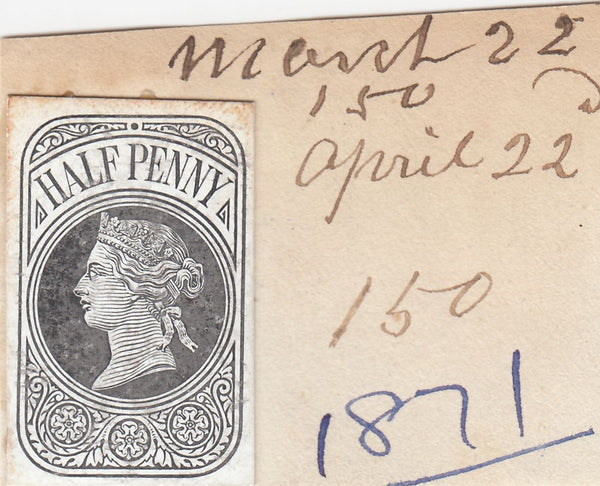 March 22
150
April 22
HALF PENNY
150
1871